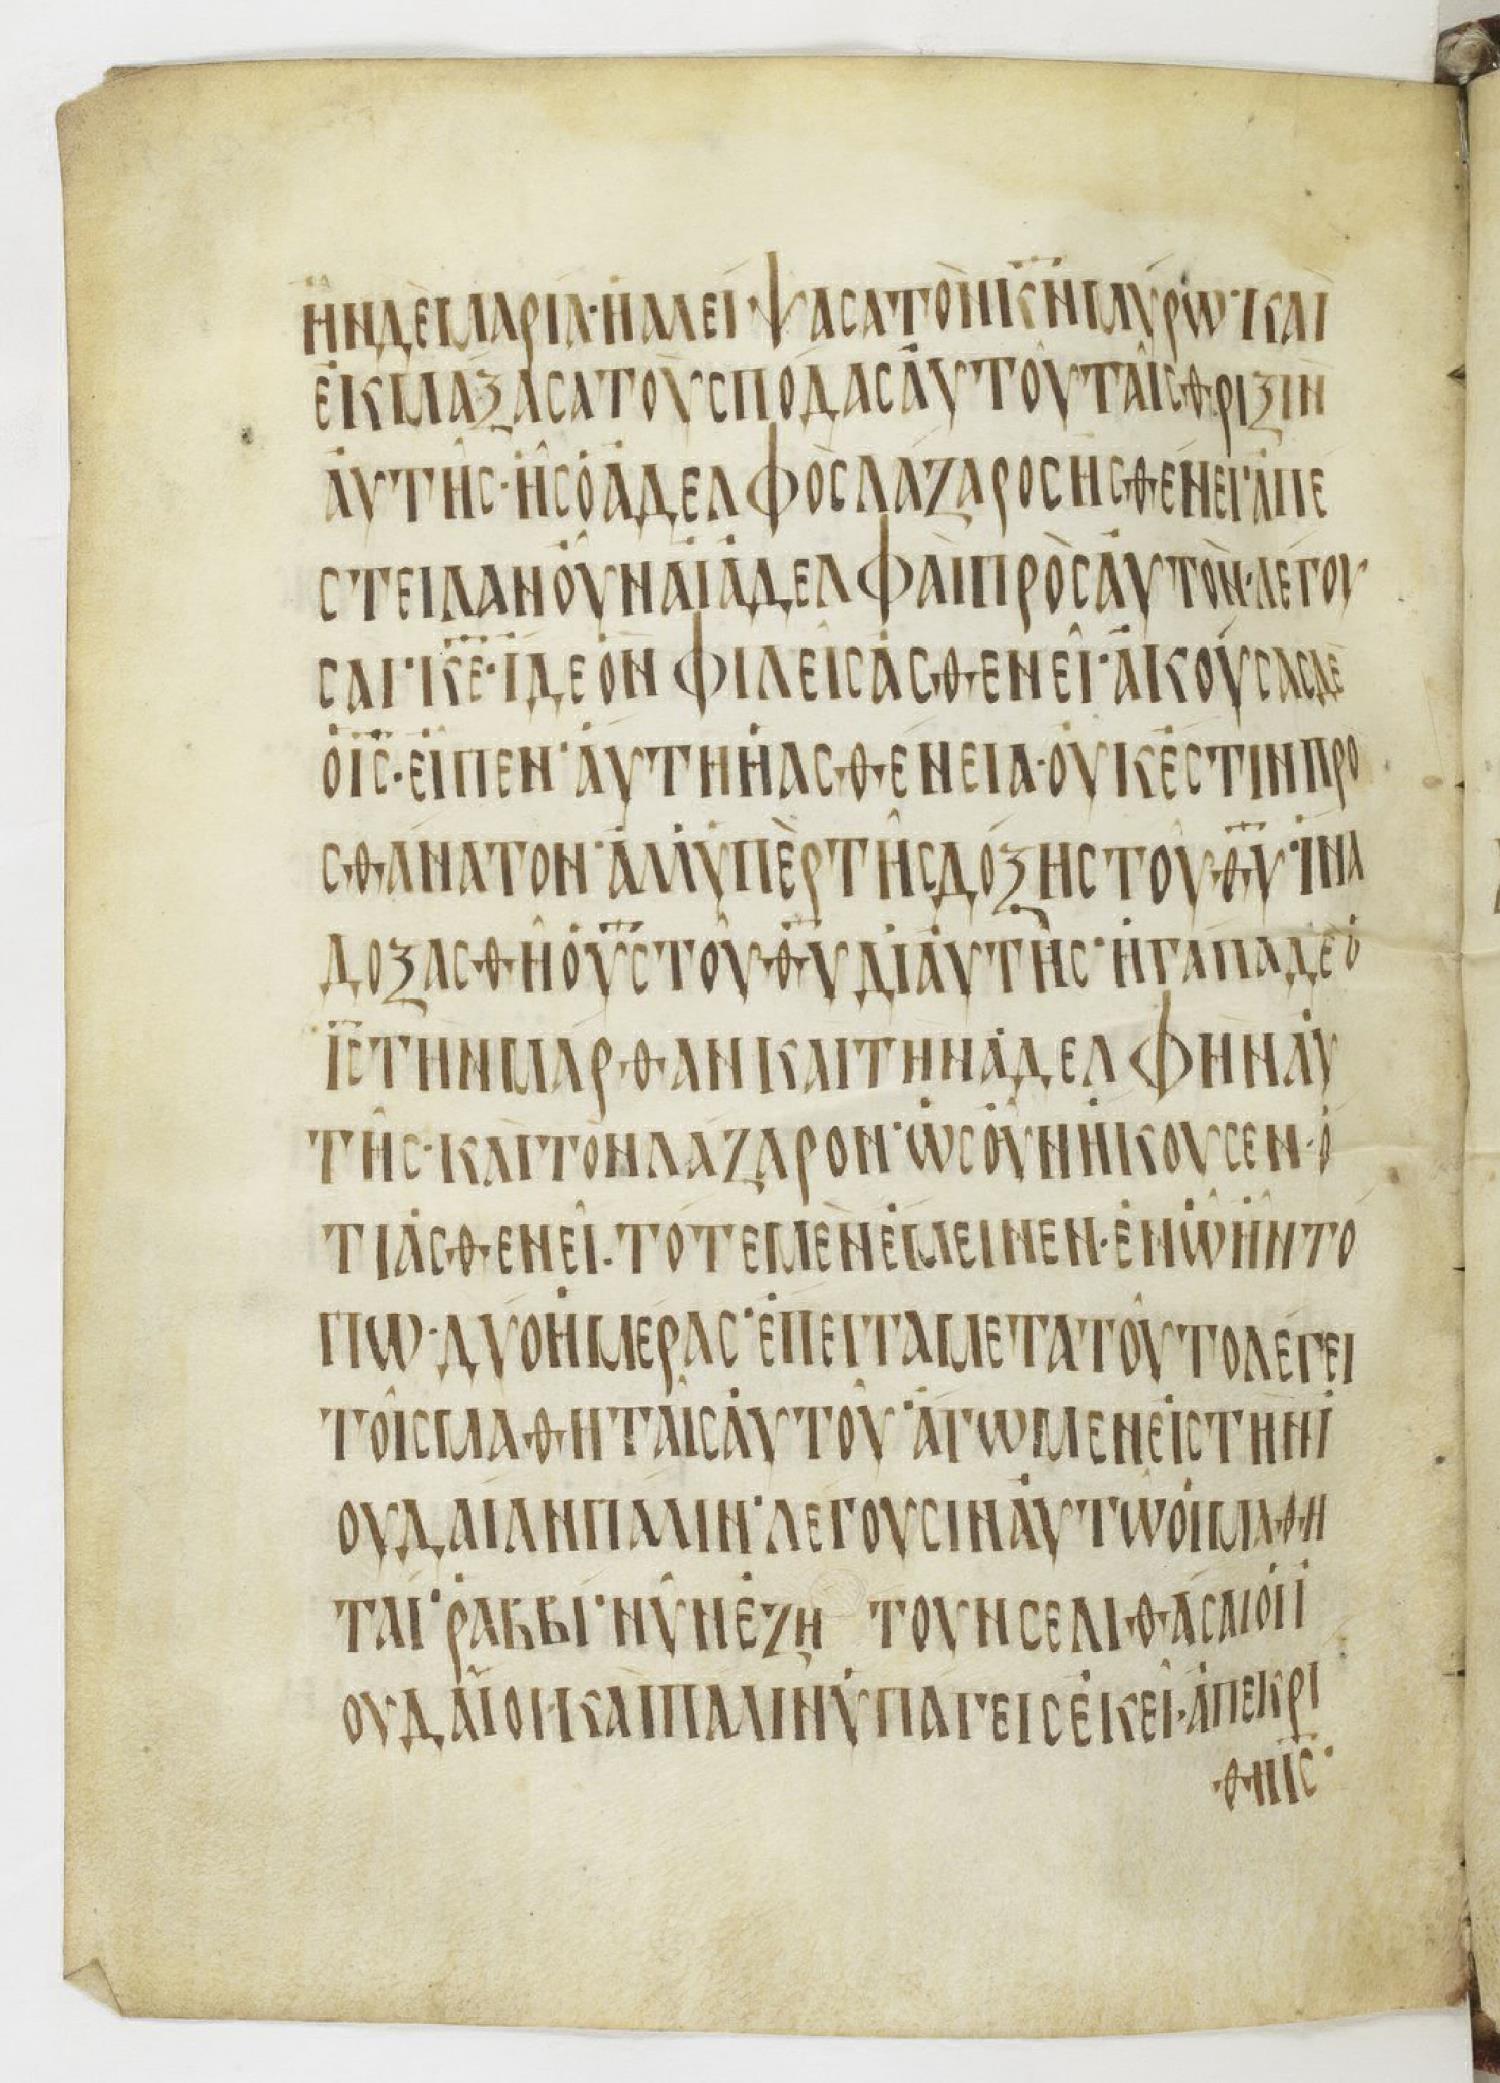 ΗΝΔΕΜΑΡΙΑ·ΗΑΛΕΙΨΑΣΑΤΟΝΚ̅Ν̅ΜΥΡΩ·ΚΑΙ
ΕΚΜΑΞΑΣΑΤΟΥΣΠΟΔΑΣΑΥΤΟΥΤΑΙΣΘΡΙΞΙΝ
ΑΥΤΗΣ·ΗΣΟΑΔΕΛΦΟΣΛΑΖΑΡΟΣΗΣΘΕΝΕΙ·ΑΠΕ
ΣΤΕΙΛΑΝΟΥΝΑΙΑΔΕΛΦΑΙΠΡΟΣΑΥΤΟΝ·ΛΕΓΟΥ
ΣΑΙ·Κ̅Ε̅·ΙΔΕΟΝΦΙΛΕΙΣΑΣΘΕΝΕΙ·ΑΚΟΥΣΑΣΔΕ
ΟΙ̅Σ̅·ΕΙΠΕΝ·ΑΥΤΗΗΑΣΘΕΝΕΙΑ·ΟΥΚΕΣΤΙΝΠΡΟ
ΣΘΑΝΑΤΟΝ·ΑΛΛΥΠΕΡΤΗΣΔΟΞΗΣΤΟΥΘ̅Υ̅·ΙΝΑ
ΔΟΞΑΣΘΗΟΥ̅Σ̅ΤΟΥΘ̅Υ̅ΔΙΑΥΤΗΣ·ΗΓΑΠΑΔΕΟ
Ι̅Σ̅ΤΗΝΜΑΡΘΑΝΚΑΙΤΗΝΑΔΕΛΦΗΝΑΥ
ΤΗΣ·ΚΑΙΤΟΝΛΑΖΑΡΟΝ·ΩΣΟΥΝΗΚΟΥΣΕΝ·Ο
ΤΙΑΣΘΕΝΕΙ·ΤΟΤΕΜΕΝΕΜΕΙΝΕΝ·ΕΝΩΗΝΤΟ
ΠΩ·ΔΥΟΗΜΕΡΑΣ·ΕΠΕΙΤΑΜΕΤΑΤΟΥΤΟΛΕΓΕΙ
ΤΟΙΣΜΑΘΗΤΑΙΣΑΥΤΟΥ·ΑΓΩΜΕΝΕΙΣΤΗΝΙ
ΟΥΔΑΙΑΝΠΑΛΙΝ·ΛΕΓΟΥΣΙΝΑΥΤΩΟΙΜΑΘΗ
ΤΑΙ·ΡΑΒΒΙ·ΝΥΝΕΖΗ ΤΟΥΝΣΕΛΙΘΑΣΑΙΟΙΙ
ΟΥΔΑΙΟΙ·ΚΑΙΠΑΛΙΝΥΠΑΓΕΙΣΕΚΕΙ·ΑΠΕΚΡΙ
ΘΗΙ̅Σ̅·